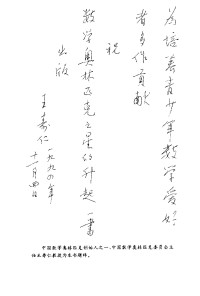 为培养青少年数学爱好
者多作贡献
祝
数学奥林匹克之星的升起一书
出版
王寿仁
一九九四年
十一月四日
中国数学奥林匹克创始人之一、中国数学奥林匹克委员会主
任王寿仁教授为本书题词。